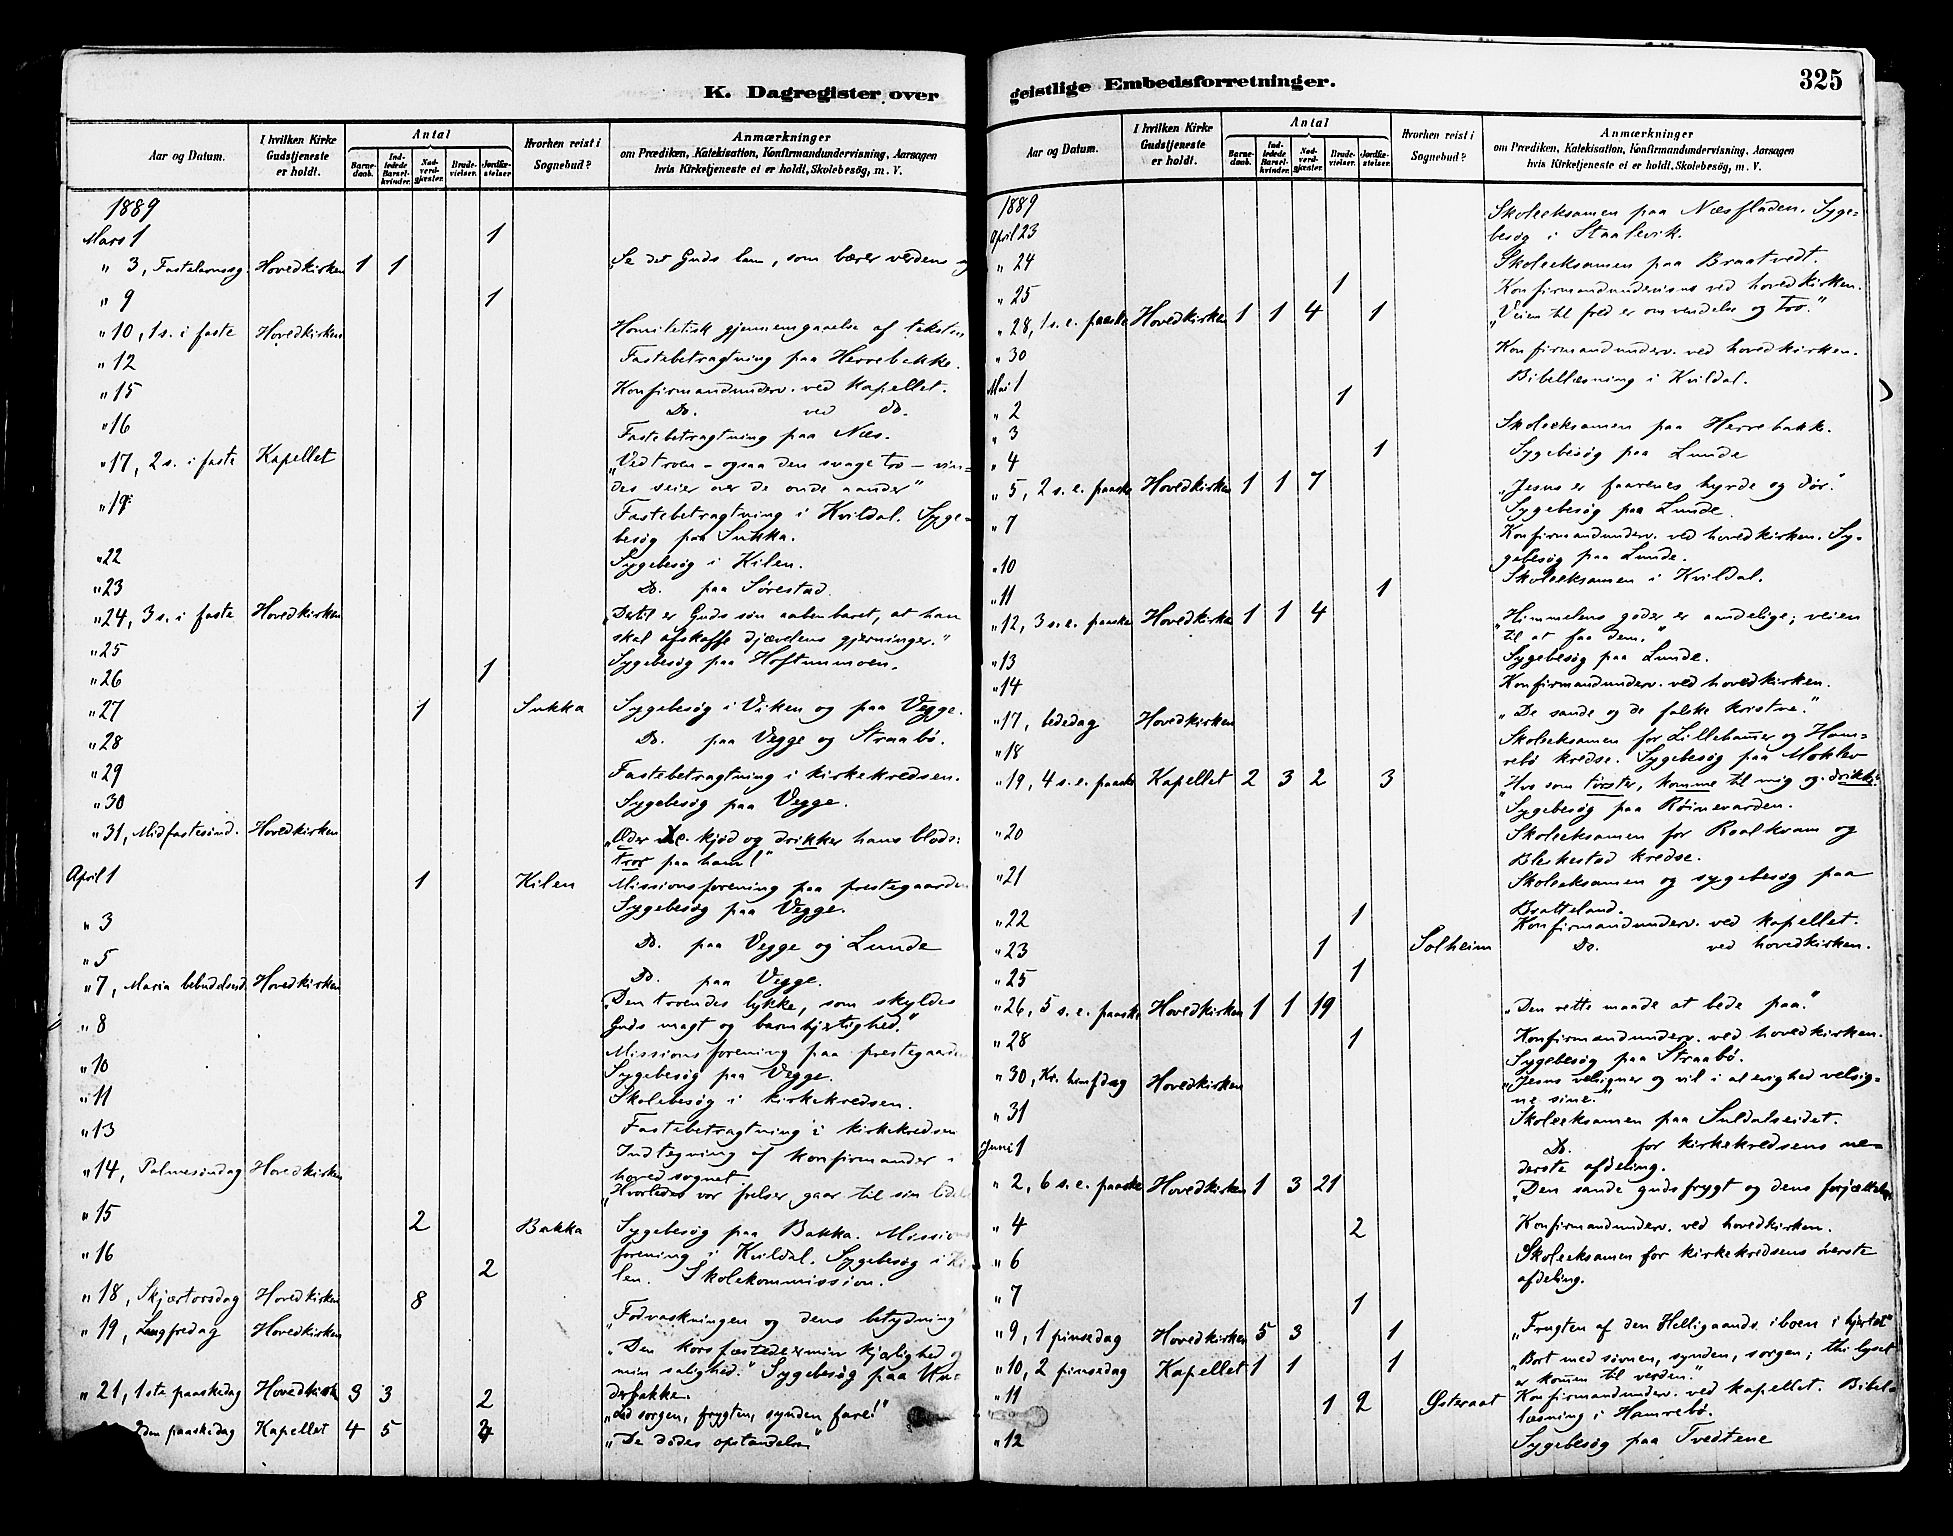 K. Dagregister over
Aar og Datum.
I hvilken Kirke Gudstjeneste er holdt.
Antal
Barne-daab.
Ind-ledede Barsel-kvinder.
Nad-verd-gjester.
Brude-vielser.
Jordfæ-stelser
Hvorhen reist i Sognebud?
Anmærkninger
om Prædiken, Katekisation, Konfirmandundervisning, Aarsagen
hvis Kirketjeneste ei er holdt, Skolebesög, m. V.
1889
Mars 1 1
" 3, Fastelavnssg. Hovedkirken 1 1 „Se det Guds lam, som bærer verdens
" 9 1
" 10, 1 s. i faste Hovedkirken Homiletisk gjennemgaaelse af teksten
" 12 Fastebetragtning paa Herrebakke.
" 15 Konfirmandunderv. ved kapellet.
" 16 Do. ved do.
Fastebetragtning paa Næs.
" 17, 2 s. i faste Kapellet „Ved troen – ogsaa den svage tro – vin-
des seier over de onde aander"
" 19 Fastebetragtning i Kvildal. Syge-
besøg paa Sukka.
" 22 Sygebesøg i Kilen.
" 23 Do. paa Sørestad.
" 24, 3 s. i faste Hovedkirken „Dertil er Guds søn aabenbaret, at han
skal afskaffe djævelens gjerninger."
" 25 Sygebesøg paa Hoftunmoen.
" 26 1
" 27 1 Sukka Sygebesøg i Viken og paa Vegge.
" 28 Do. paa Vegge og Straabø.
" 29 Fastebetragtning i kirkekredsen.
" 30 Sygebesøg paa Vegge.
" 31, Midfastesønd. Hovedkirken kjød og drikker hans blod:
tror paa ham!"
April 1 1 Kilen Missionsforening paa prestegaarden
Sygebesøg paa Vegge.
" 3 Do. paa Vegge og Lunde
" 5 Do. paa Vegge.
" 7, Maria bebudelsesd. Hovedkirken „Den troendes lykke, som skyldes
Guds magt og barmhjertighed."
" 8 Missionsforening paa prestegaarden
" 10 Sygebesøg paa Vegge.
" 11 Skolebesøg i kirkekredsen.
" 13 Fastebetragtning i kirkekredsen
Indtegning af konfirmander i
hovedsognet.
" 14, Palmesøndag Hovedkirken „Hvorledes vor frelser gaar til sin
" 15 2 Bakka Sygebesøg paa Bakka. Missions
forening i Kvildal. Sygebesøg i Ki-
" 16 2 len. Skolekommission.
" 18, Skjærtorsdag Hovedkirken 8 „Fodvaskningen og dens betydning
" 19, Langfredag Hovedkirken „Den korsfæstede er min kjærlighed og
min salighed." Sygebesøg paa Un-
derbakke.
" 21, 1ste paaskedag Hovedkirken 3 3 2 sorgen, frygten, synden fare!"
2den paaskedag Kapellet 4 5 „De dødes opstandelse"
geistlige Embedsforretninger.
325
Aar og Datum.
I hvilken Kirke Gudstjeneste er holdt.
Antal
Barne-daab.
Ind-ledede Barsel-kvinder.
Nad-verd-gjester.
Brude-vielser.
Jordfæ-stelser.
Hvorhen reist i Sognebud?
Anmærkninger
om Prædiken, Katekisation, Konfirmandundervisning, Aarsagen
hvis Kirketjeneste ei er holdt, Skolebesög, m. V.
1889 Skoleeksamen paa Næsfladen. Syge-
April 23 besøg i Staalevik.
" 24 Skoleeksamen paa Braatvedt.
" 25 1 Konfirmandundervisn. ved hovedkirken.
" 28, 1 s. e. paaske Hovedkirken 1 1 4 1 „Veien til fred er omvendelse og tro."
" 30 Konfirmandunderv. ved hovedkirken.
Mai 1 Bibellæsning i Kvildal.
" 2 1
" 3 Skoleeksamen paa Herrebakk.
" 4 1 Sygebesøg paa Lunde
" 5, 2 s. e. paaske Hovedkirken 1 1 7 „Jesus er faarenes hyrde og dør."
Sygebesøg paa Lunde.
" 7 Konfirmandunderv. ved hovedkirken. Sy-
gebesøg paa Lunde.
" 10 Skoleeksamen i Kvildal.
" 11 1
" 12, 3 s. e. paaske Hovedkirken 1 1 4 „Himmelens goder er aandelige; veien
til at faa dem."
" 13 Sygebesøg paa Lunde.
" 14 Konfirmandunderv. ved hovedkirken.
" 17, bededag Hovedkirken „De sande og de falske kristne."
" 18 Skoleeksamen for Lillehamer og Ham-
rebø kredse. Sygebesøg paa Mokleiv
" 19, 4 s. e. paaske Kapellet 2 3 2 3 „Hvo som tørster, komme til mig og drikke!"
Sygebesøg paa Røinevarden.
" 20 Skoleeksamen for Roalkvam og
Bleskestad kredse.
" 21 Skoleeksamen og sygebesøg paa
Bratteland.
" 22 1 Konfirmandunderv. ved kapellet.
" 23 1 Solheim Do. ved hovedkirken.
" 25 1
" 26, 5 s. e. paaske Hovedkirken 1 1 19 „Den rette maade at bede paa."
" 28 1 Konfirmandunderv. ved hovedkirken.
Sygebesøg paa Straabø.
" 30, Kr. himfdag Hovedkirken „Jesus velsigner og vil i al evighed velsig-
ne sine."
" 31 Skoleeksamen paa Suldalseidet.
Juni 1 Do. for kirkekredsens ne-
derste afdeling.
" 2, 6 s. e. paaske Hovedkirken 1 3 21 „Den sande gudsfrygt og dens forjættelse
" 4 2 Konfirmandunderv. ved hovedkirken.
" 6 Skoleeksamen for kirkekredsens øverste
afdeling.
" 7 1
" 9, 1 pinsedag Hovedkirken 5 3 1 „Frugten af den Helligaands iboen i hjertet"
" 10, 2 pinsedag Kapellet 1 1 1 „Bort med søvnen, synden, sorgen; thi lyset
er kommen til verden."
" 11 1 2 Østeraat Konfirmandunderv. ved kapellet. Bibel-
læsning i Hamrebø.
" 12 Sygebesøg paa Tvedtene